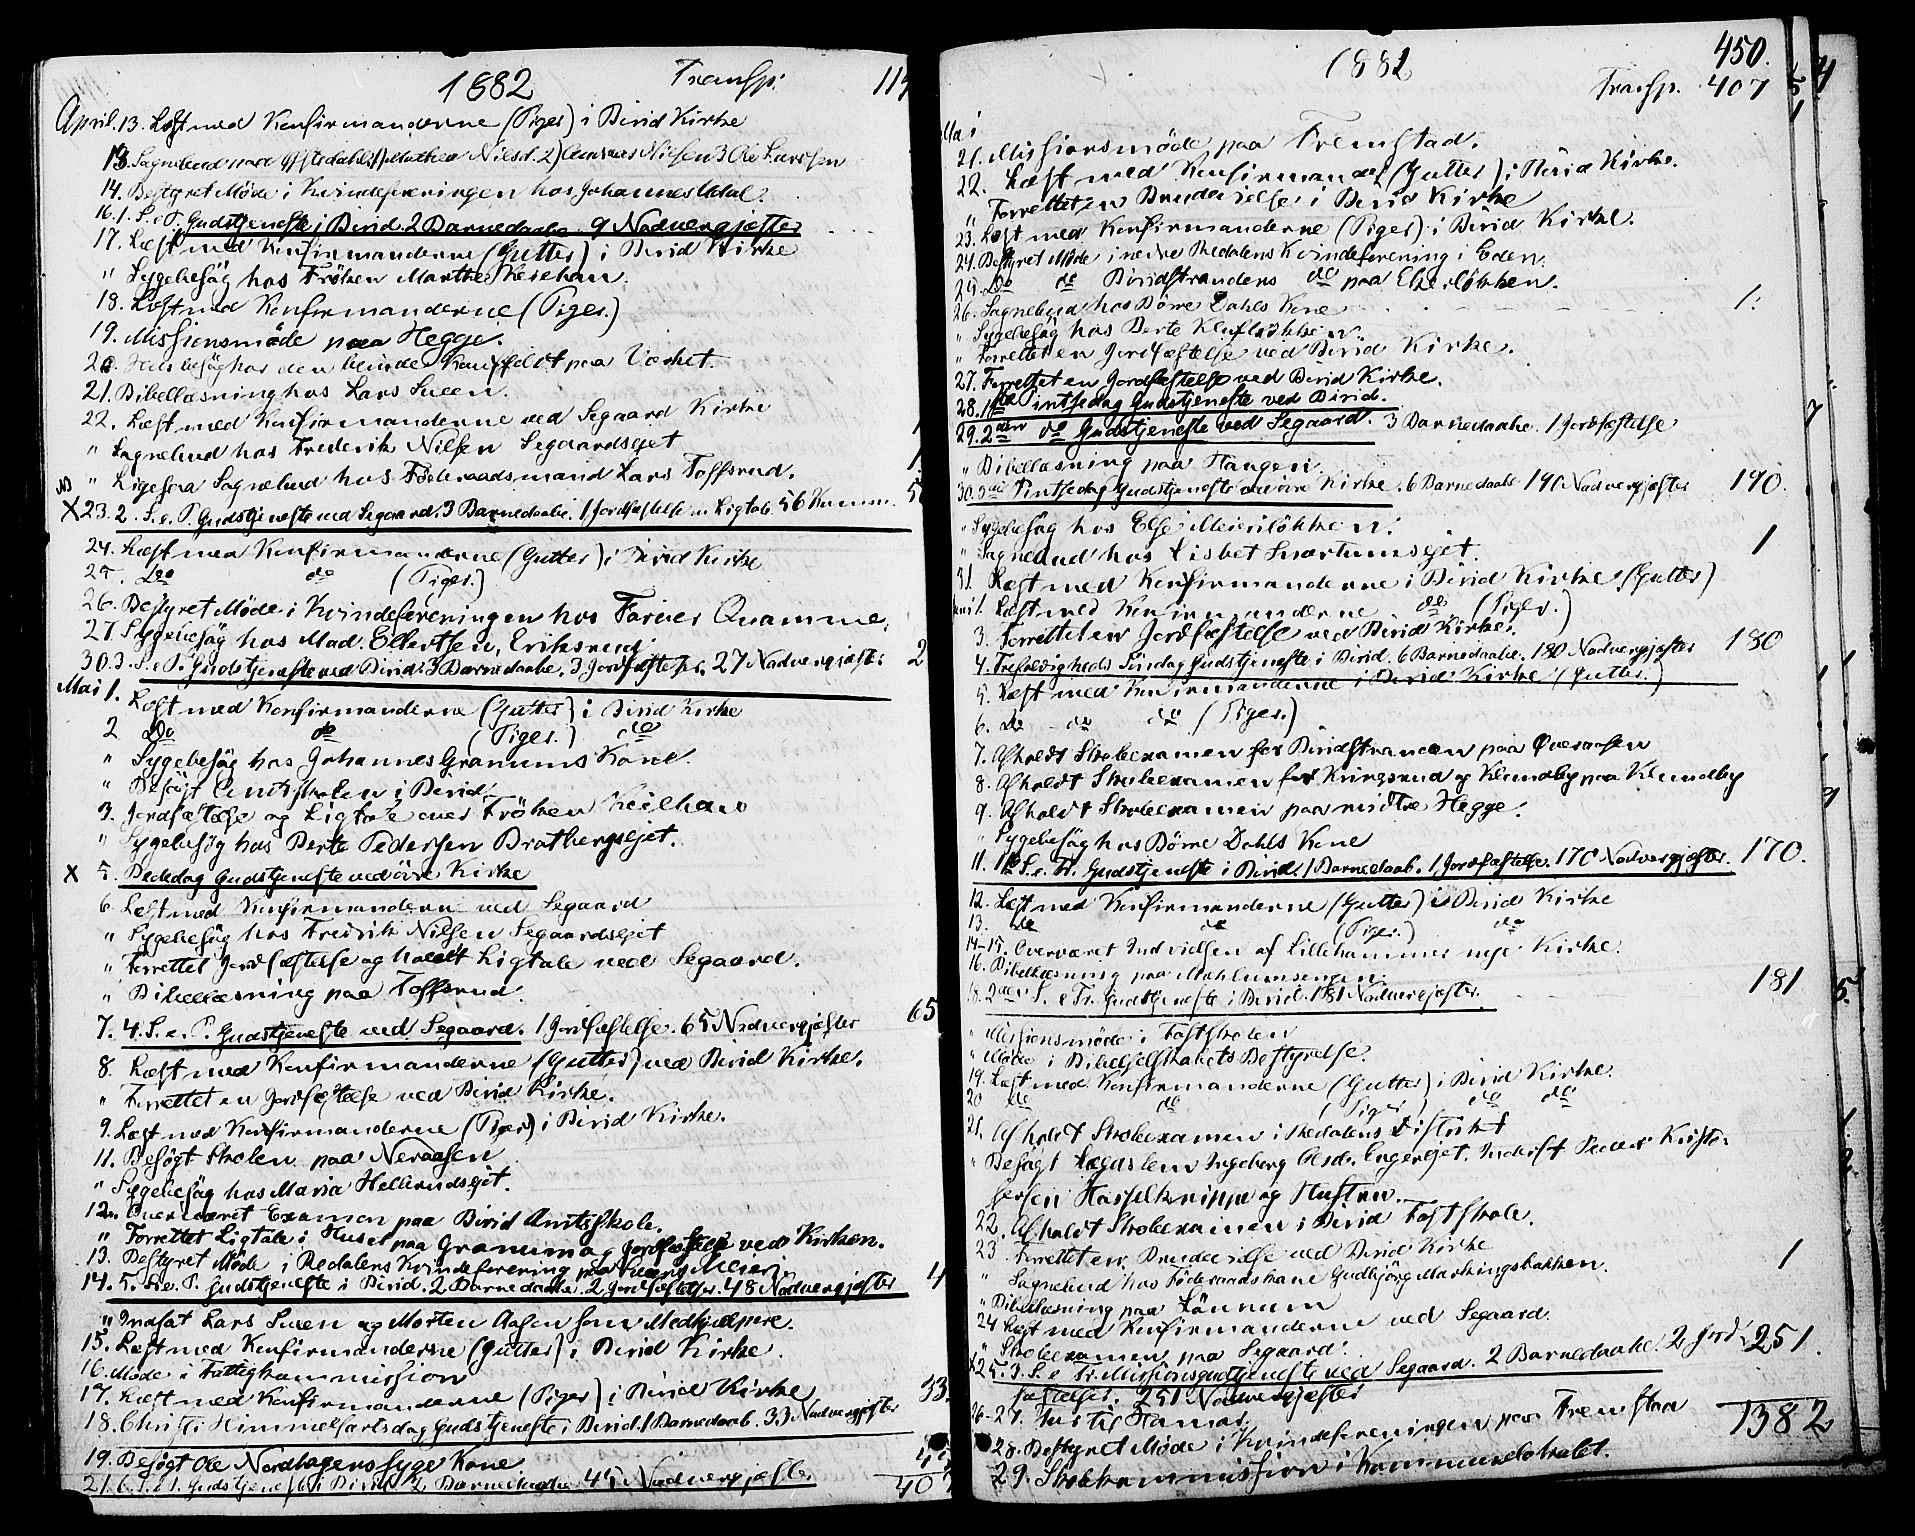 1882 Transp. 114
April. 13. Læst med Konfirmanderne (Piger) i Birid Kirke
13. Sognebud paa 1) Mathea Nilsd. 2) Andreas Nilsen 3 Ole Larssen
14. Bestyret Møde i Kvindeforeningen hos Johannes
16. 1. S. e. P. Gudstjeneste i Birid. 2 Barnedaabe. 9 Nadvergjæster
17. Læst med Konfirmanderne (Gutter) i Birid Kirke
" Sygebesög hos Fröken Marthe Keilhau.
18. Læst med Konfirmanderne (Piger.)
19. Missionsmøde paa Hegge.
20. Husbesög hos den blinde paa Værket.
21. Bibellæsning hos Lars Sveen.
22. Læst med Konfirmanderne ved Segaard Kirke
" Sognebud hos Frederik Nilsen Segaardsejet 1
NB " Ligesaa Sognebud hos Föderaadsmand Lars Toffsrud. 1
X 23. 2. S. e. P. Gudstjeneste ved Segaard. 3 Barnedaabe. 1 Jordfæstelse m Ligtale. 56 Kommu. 5
24. Læst med Konfirmanderne (Gutter) i Birid Kirke
25. Do do (Piger.)
26. Bestyret Møde i Kvindeforeningen hos Farver Quamme.
27. Sygebesög hos Mad. Ellertsen, Eriksrud
30. 3. S. e. P. Gudstjeneste ved Birid. 3 Barnedaabe. 3 Jordfæstelser. 27 Nadvergjæster 2
Mai 1. Læst med Konfirmanderne (Gutter) i Birid Kirke
2 Do do (Piger.) do
" Sygebesög hos Johannes Granums Kone.
" Besögt Amtsskolen i Birid.
3. Jordfæstelse og Ligtale over Fröken Keilhau
" Sygebesög hos Berte Pedersen Bratbergsejet.
X 5. Bededag Gudstjeneste ved övre Kirke
6. Læst med Konfirmanderne ved Segaard
" Sygebesög hos Fredrik Nilsen Segaardsejet
" Forrettet Jordfæstelse og holdt Ligtale ved Segaard.
" Bibellæsning paa Toffsrud.
7. 4. S. e. P. Gudstjeneste ved Segaard. 1 Jordfæstelse. 65 Nadvergjæster 65
8. Læst med Konfirmanderne (Gutter) ved Birid Kirke.
" Forrettet en Jordfæstelse ved Birid Kirke.
9. Læst med Konfirmanderne (Piger) i Birid Kirke.
11. Besögt Skolen paa Neraasen
" Sygebesög hos Maria Hellerudsejet.
12. Overværet Examen paa Birid Amtsskole.
" Forrettet Ligtale i Huset paa Granum og Jordfæstelse ved Kirken.
13. Bestyret Møde i Redalens Kvindeforening paa Meieri.
14. 5. S. e. P. Gudstjeneste i Birid. 2 Barnedaabe. 2 Jordfæstelser. 48 Nadvergjæster 4
" Indsat Lars Sveen og Morten Aasen som Medhjelpere.
15. Læst med Konfirmanderne (Gutter) i Birid Kirke.
16. Møde i Fattigkommission
17. Læst med Konfirmanderne (Piger) i Birid Kirke
18. Christi Himmelfartsdag Gudstjeneste i Birid. 1 Barnedaab. 33 Nadvergjæster 33
19. Besögt Ole Nordhagens syge Kone
21. 6. S. e. P. Gudstjeneste i Birid 2 Barnedaabe 45 Nadvergjæster.
407
450.
1882 Transp. 407
Mai
21. Missionsmöde paa Fremstad.
22. Læst med Konfirmander (Gutter) i Birid Kirke.
" Forrettet en Brudevielse i Birid Kirke
23. Læst med Konfirmanderne (Piger) i Birid Kirke.
24. Bestyret Møde i nedre Redalens Kvindeforening i Eden.
25. Do do Biridstrandens do paa Elkelökken.
26. Sognebud hos Börre Dahls Kone 1.
" Sygebesög hos Berte
" Forrettet en Jordfæstelse ved Birid Kirke.
27. Forrettet en Jordfæstelse ved Birid Kirke.
28. 1ste Pintsedag Gudstjeneste ved Birid.
29. 2den do Gudstjeneste ved Segaard. 3 Barnedaabe. 1 Jordfæstelse
" Bibellæsning paa Haugen.
30. 3die Pintsedag Gudstjeneste ved övre Kirke. 6 Barnedaabe 190 Nadvergjæster 190.
" Sygebesög hos Else Meierilökken.
" Sognebud hos Lisbet Snartumsejet. 1
31. Læst med Konfirmanderne i Birid Kirke (Gutter)
Juni 1. Læst med Konfirmanderne do (Piger.)
3. Forrettet en Jordfæstelse ved Birid Kirke.
4. Trefoldigheds Söndag Gudstjeneste i Birid. 6 Barnedaabe. 180 Nadvergjæster 180
5. Læst med Konfirmanderne i Birid Kirke (Gutter.)
6. Do do do (Piger.)
7. Afholdt Skoleexamen for Biridstranden paa Överaasen
8. Afholdt Skoleexamen for Kringsrud og Klundby paa Klundby
9. Afholdt Skoleexamen paa midtre Hegge.
" Sygebesög hos Börre Dahls Kone
11. 1ste S. e. Tr. Gudstjeneste i Birid. 1 Barnedaab. 1 Jordfæstelse. 170 Nadvergjæster. 170.
12. Læst med Konfirmanderne (Gutter) i Birid Kirke
13. do do (Piger.) do
14-15. Overværet Indvielsen af Lillehammer nye Kirke.
16. Bibellæsning paa Mæhlumsengen.
18. 2den S. e. Tr. Gudstjeneste i Birid. 181 Nadvergjæster. 181
" Missionsmöde i Fastskolen
" Møde i Bibelselskabets Bestyrelse.
19. Læst med Konfirmanderne (Gutter) i Birid Kirke.
20 do do (Piger) do do
21. Afholdt Skoleexamen i Redalens Distrikt
" Besögt Ingeborg Olsdr. Engerejet. Inderst Peder Kristo-
fersen Hasselknippe og Hustru.
22. Afholdt Skoleexamen i Birid Fastskole.
23 Forrettet en Brudevielse ved Birid Kirke
" Sognebud hos Föderaadskone Gudbjörg Martinsbakken. 1
" Bibellæsning paa Lönnum
24 Læst med Konfirmanderne ved Segaard.
" Skoleexamen paa Segaard.
X 25. 3. S. e Tr. Missionsgudstjeneste ved Segaard. 2 Barnedaabe. 2 Jord- 251.
fæstelser. 251 Nadvergjæster
26-27. Jus til Hamar.
28. Bestyret Møde i Kvindeforeningen paa Fremstad 1382
29. Skolekommission i Kommunelokalet.